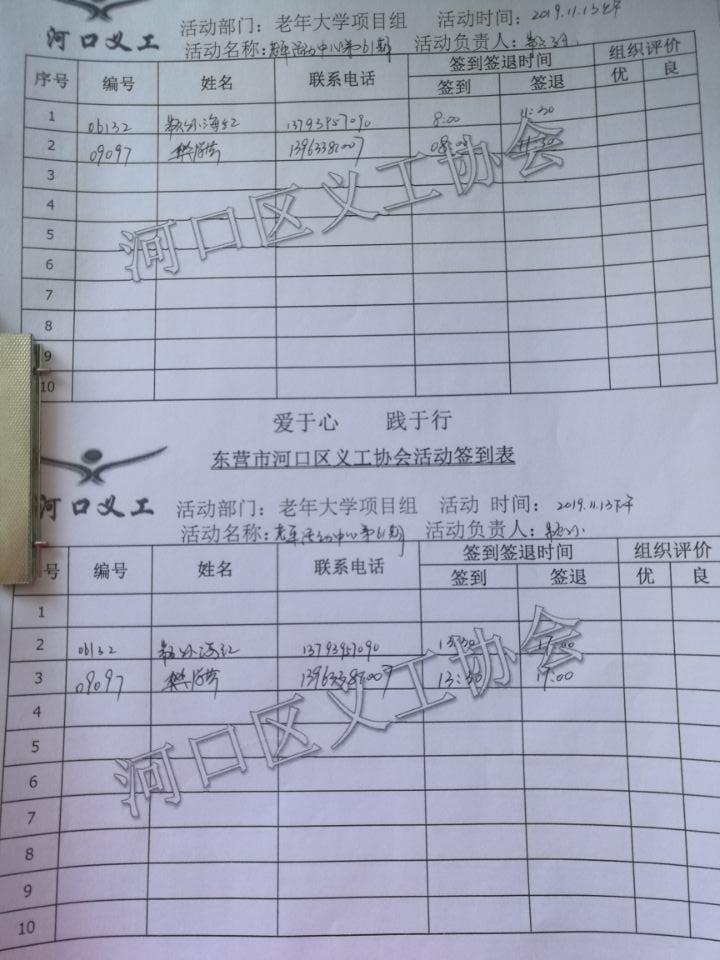 河口义工
活动部门：老年大学项目组 活动时间：2019.11.13上午
活动名称：老年活动中心第61期 活动负责人：
序号 编号 姓名 联系电话 签到签退时间 组织评价
签到 签退 优 良
1 06132 海红 13793957090 8:00 11:30
2 09097 08:00 11:30
3
4
5
6
7
8
9
10
河口区义工协会
爱于心 践于行
东营市河口区义工协会活动签到表
河口义工
活动部门：老年大学项目组 活动 时间：2019.11.13下午
活动名称：老年活动中心第61期 活动负责人：
号 编号 姓名 联系电话 签到签退时间 组织评价
签到 签退 优 良
1
2 06132 海红 13793957090 13:30 17:00
3 09097 13:30 17:00
4
5
6
7
8
9
10
河口区义工协会